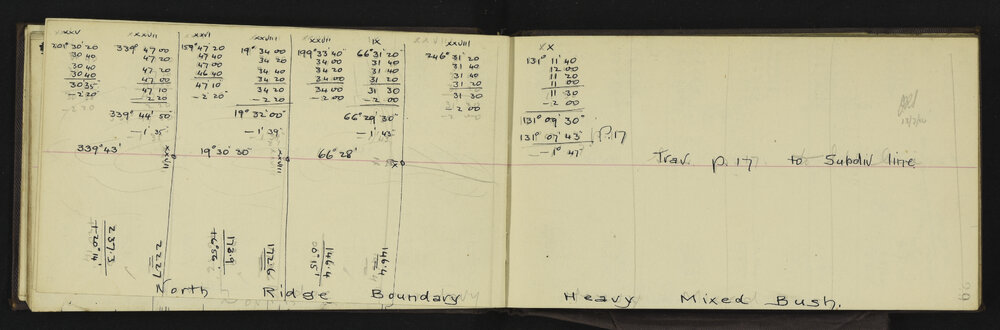 XXV
201° 30' 20
30 40
30 40
30 40
30 35
- 2 20
XXVII
339° 47 00
47 20
47 20
47 00
47 10
- 2 20
339° 44' 50"
- 1' 35"
339° 43'
XXVI
159° 47 20
47 40
47 00
46 40
47 10
- 2 20
XXVIII
19° 34 00
34 20
34 40
34 20
34 20
- 2 20
19° 32' 00"
- 1' 39"
19° 30' 30"
XXVII
199° 33' 40"
34 00
34 20
34 00
34 00
- 2 20
IX
66° 31' 20
31 40
31 40
31 20
31 30
- 2 00
66° 29' 30"
- 1' 43"
66° 28'
XXVIII
246° 31' 20
31 40
31 40
31 20
31 30
- 2 00
XXVII
XXVIII
X
237.3
+20° 14'
222.7
173.9
+6° 56'
172.6
146.4
00° 15'
146.4
North Ridge Boundary
XX
131° 11' 40
12 00
11 20
11 00
11 30
- 2 00
131° 09' 30"
131° 07' 43" P.17
- 1' 47"
Trav. p. 17 to Subdiv line
Heavy Mixed Bush.
29